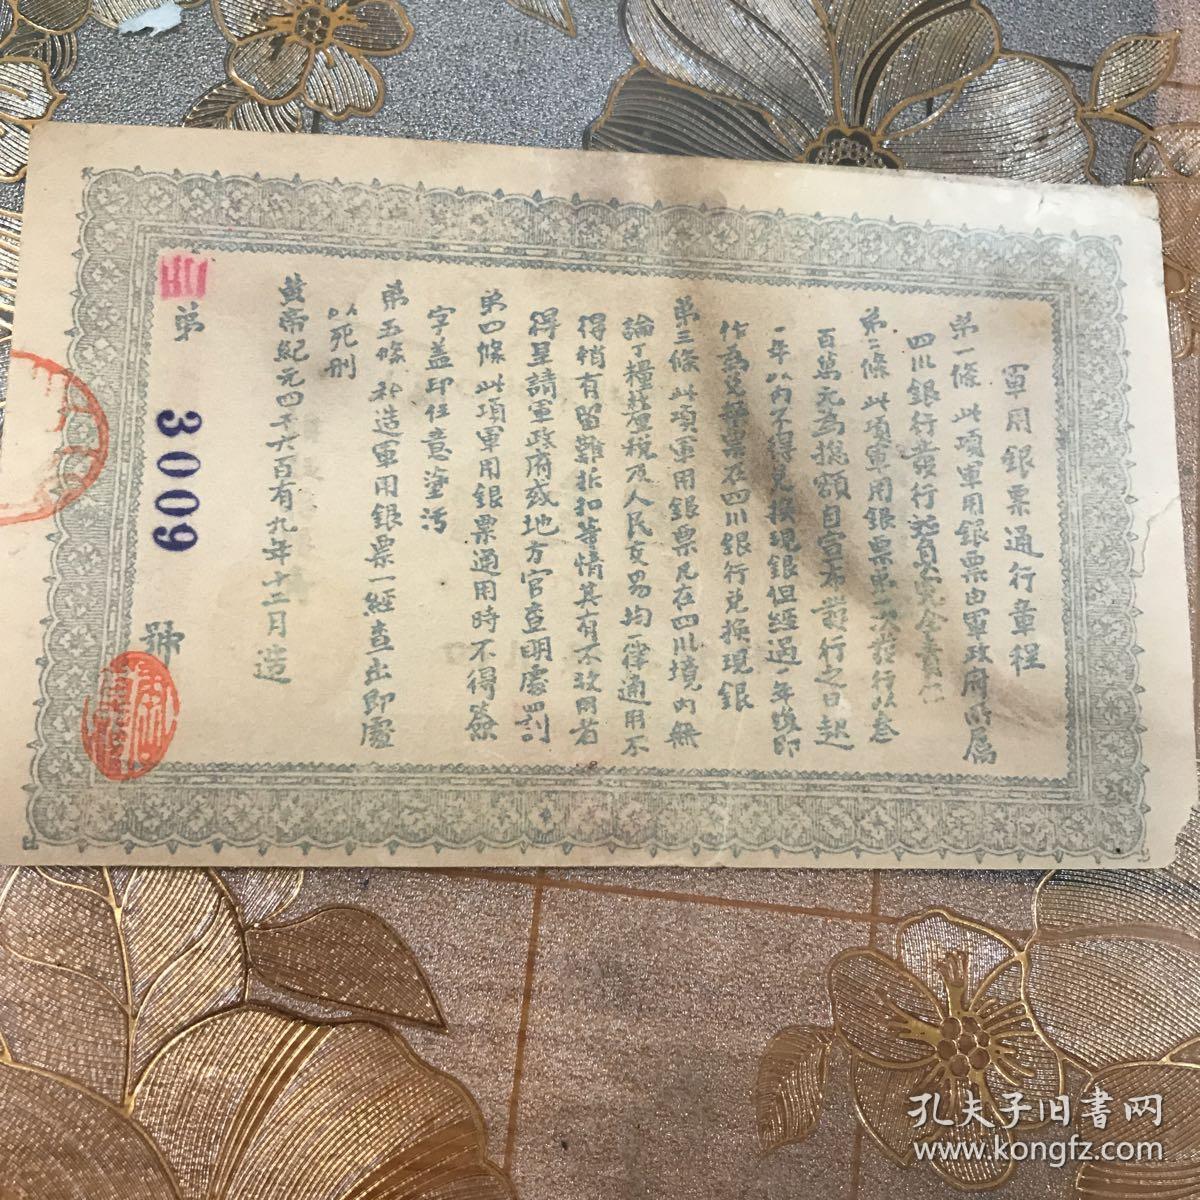 軍用銀票通行章程
第一條 此項軍用銀票由軍政府所屬
四川銀行發行並負完全責任
第二條 此項軍用銀票 發行以叁
百萬元為總額自宣布發行之日起
一年以內不得兌換現銀但經過一年後即
作為兌換票在四川銀行兌換現銀
第三條 此項軍用銀票凡在四川境內無
論丁糧釐稅及人民交易均一律通用不
得稍有留難折扣等情其有不 者
得呈請軍政府或地方官查明處罰
第四條 此項軍用銀票通用時不得簽
字蓋印任意塗污
第五條 私造軍用銀票一經查出即處
以死刑
黃帝紀元四千六百有九年十二月造
第 3009 號
孔夫子旧書网
www.kongfz.com